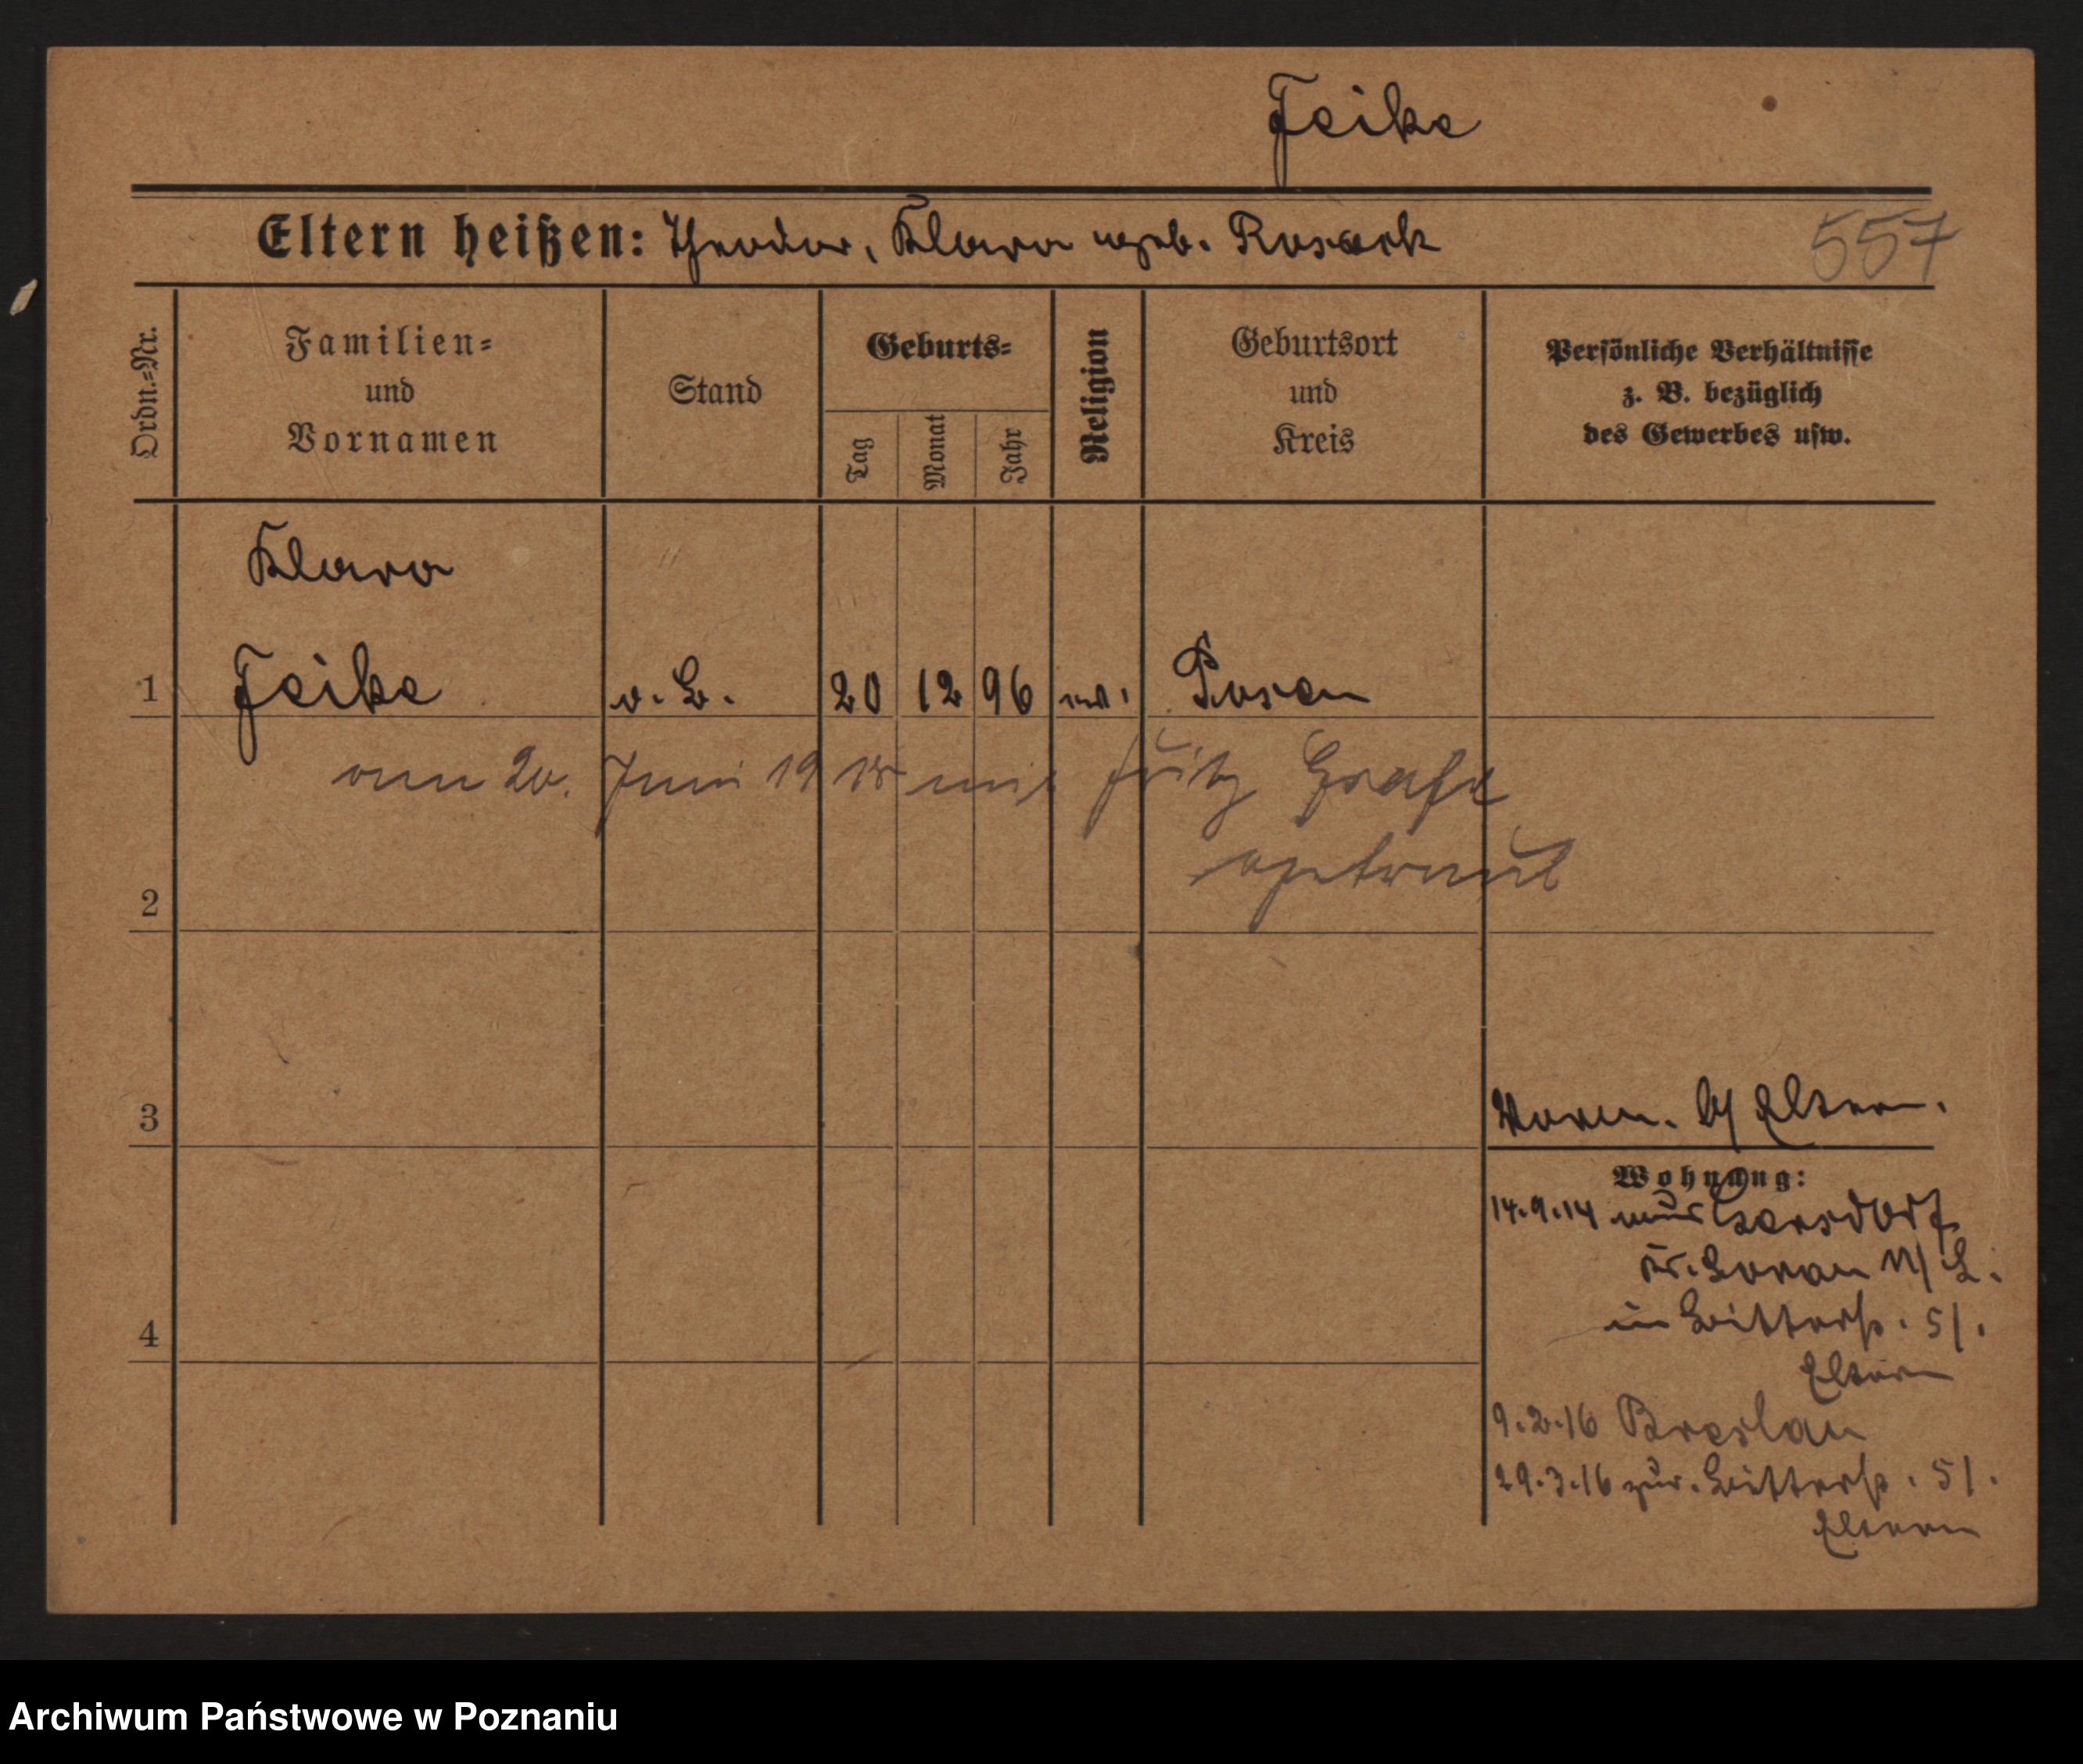 Feike
Eltern heißen: Theodor, Klara geb. Rosack
557
Ordn.=Nr.
Familien=
und
Vornamen
Stand
Geburts=
Tag
Monat
Jahr
Religion
Geburtsort
und
Kreis
Persönliche Verhältnisse
z. B. bezüglich
des Gewerbes usw.
Klara
1 Feike o. B. 20 12 96 ev. Posen
am 20. Juni 1918 mit Fritz Grafe
getraut
2
3 Vorm. b/ Eltern.
Wohnung:
14.9.14 aus Gersdorf
Kr. Sorau N/L.
in Bitterstr. 51.
4
Eltern
9.2.16 Breslau
29.3.16 zur. Bitterstr. 51.
Eltern
Archiwum Państwowe w Poznaniu